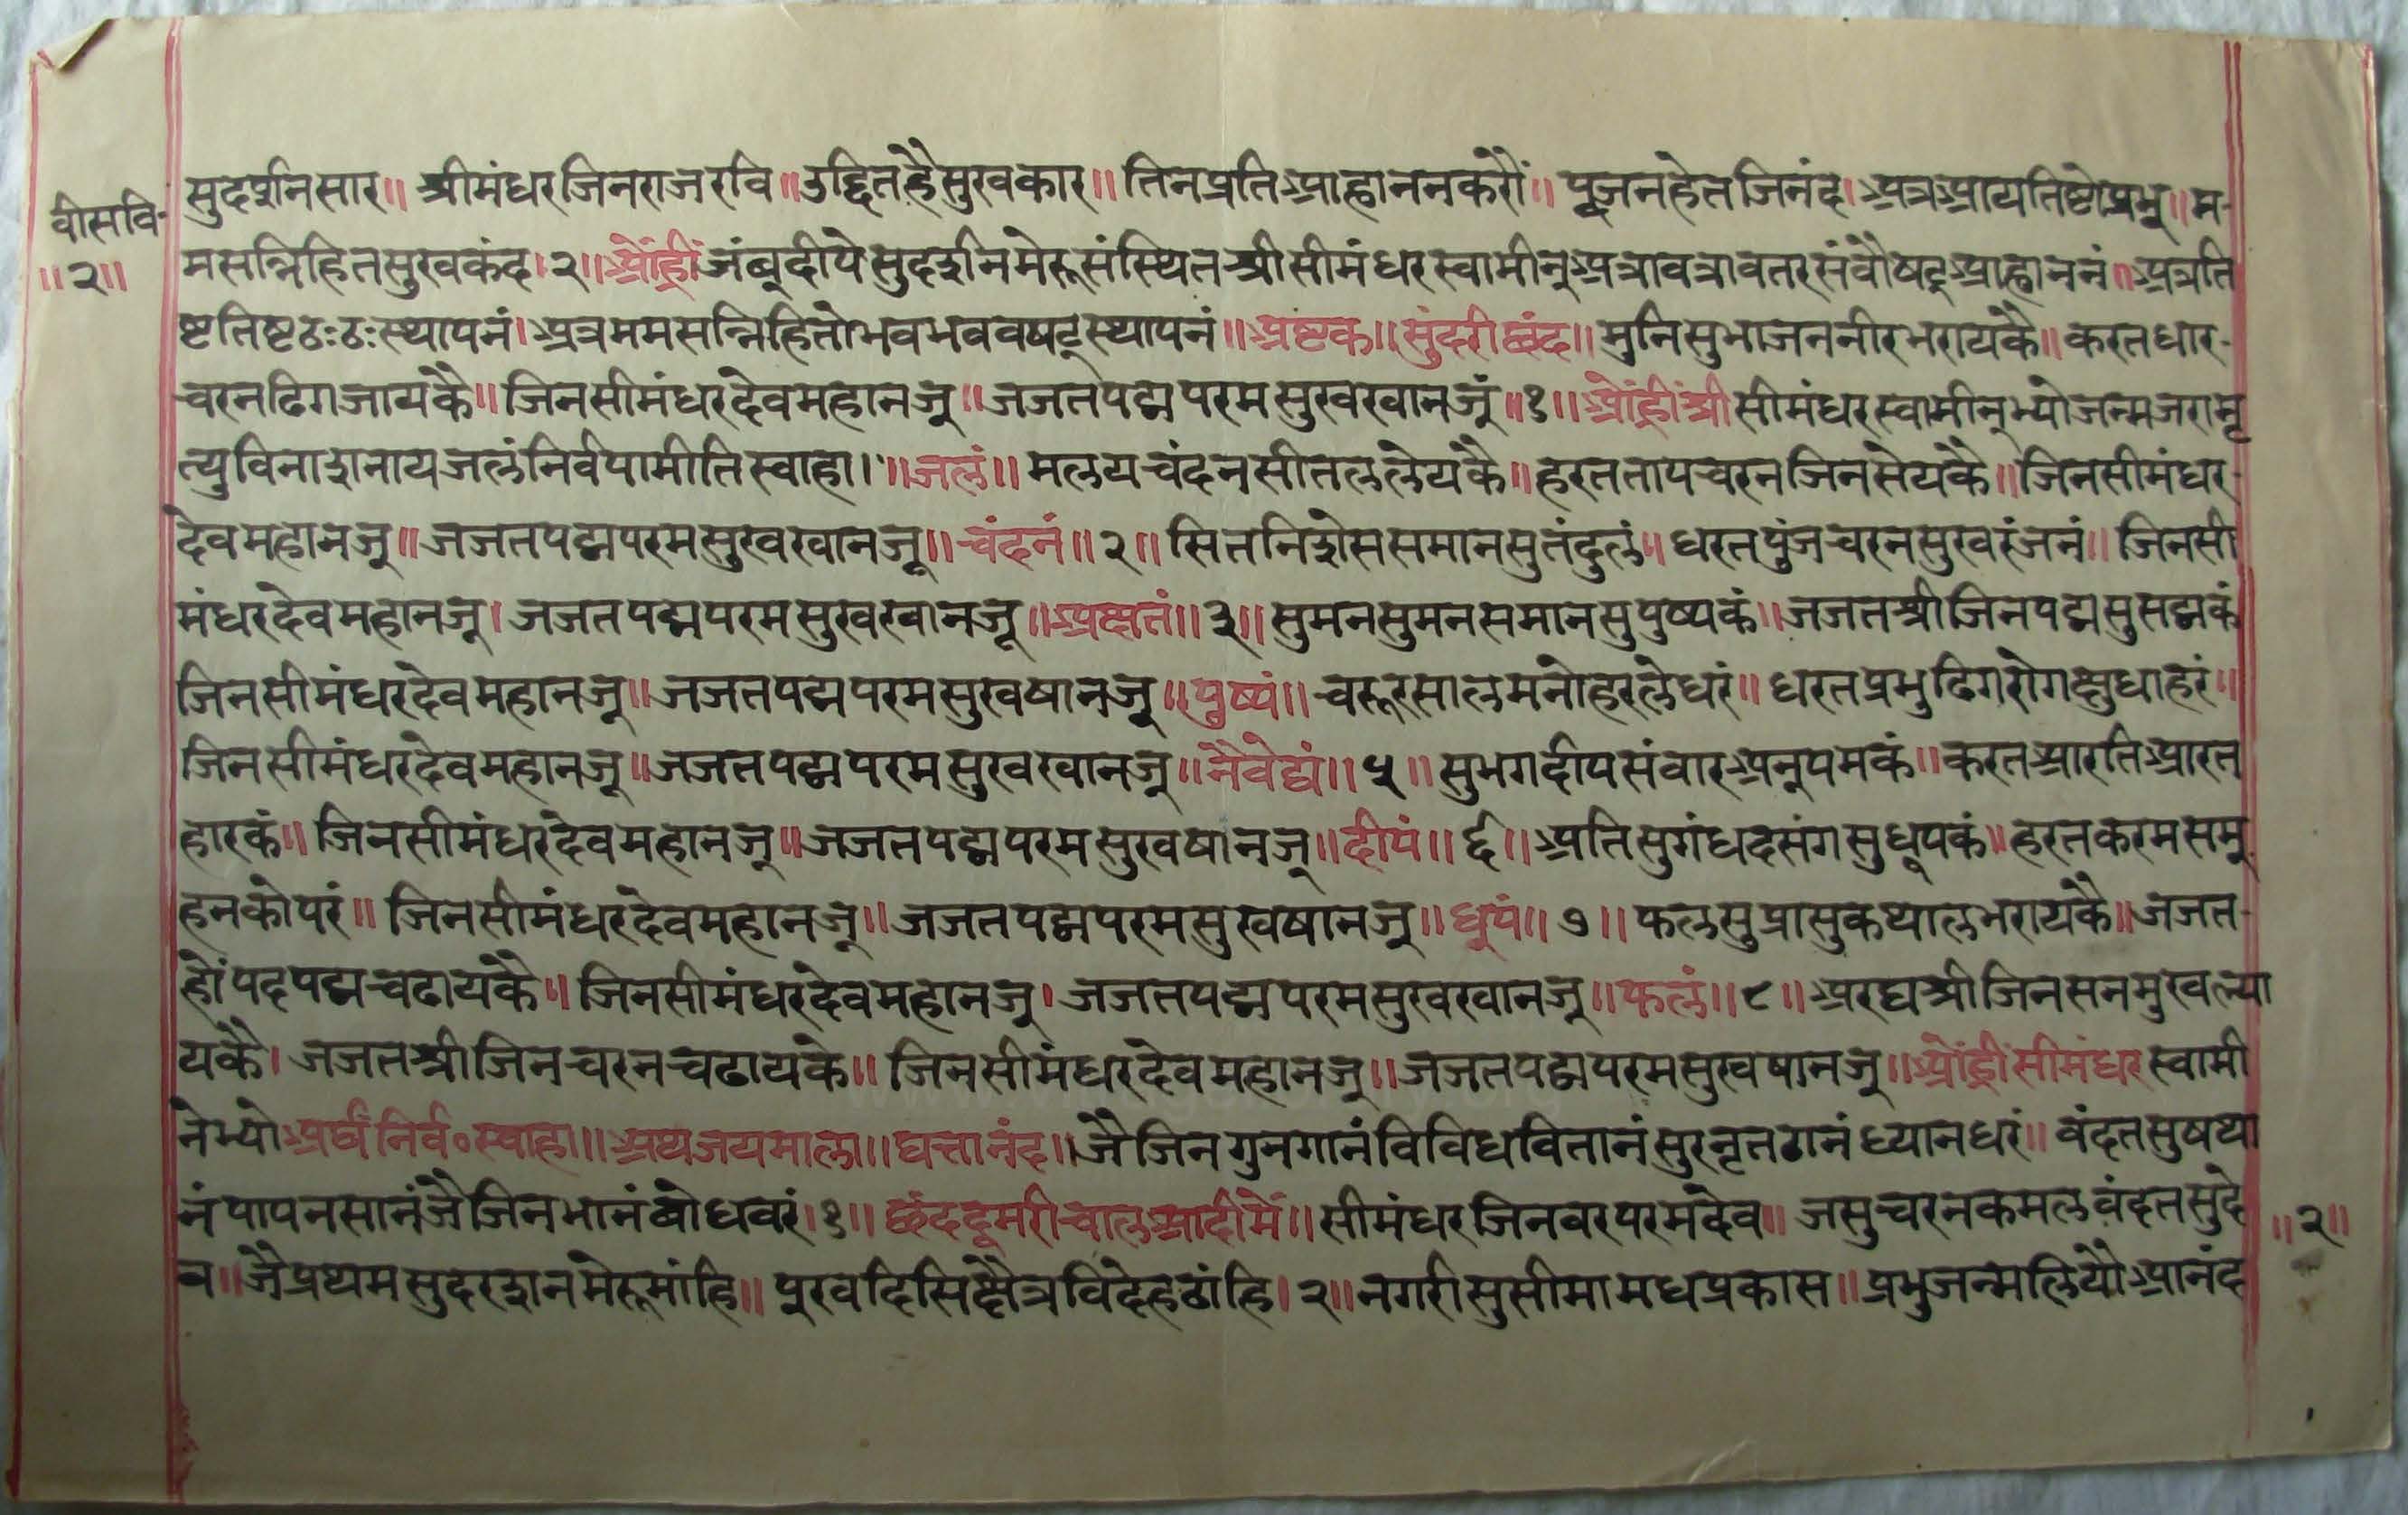 सुदर्शनसार॥ श्रीमंधरजिनराजरवि॥उद्दितहैसुखकार॥ तिनप्रतिआह्वाननकरौं॥ पूजनहेतजिनंद।अत्रआयतिष्टोप्रभू॥म-
वीसवि-
॥२॥
मसन्निहितसुखकंद।२॥ओंह्रींजंबूदीपेसुदर्शनमेरूसंस्थितश्रीसीमंधरस्वामीन्अत्रावत्रावतरसंवौषट्आह्वाननं॥अत्रति
ष्टतिष्टठःठःस्थापनं।अत्रममसन्निहितोभवभववषट्स्थापनं॥अष्टक॥सुंदरीछंद॥मुनिसुभाजननीरभरायकै॥करतधार-
चरनढिगजायकै॥जिनसीमंधरदेवमहानजू॥जजतपद्मपरमसुखखानजूं॥१॥ओंह्रींश्रीसीमंधरस्वामीन्भ्योजन्मजरामृ
त्युविनाशनायजलंनिर्वपामीतिस्वाहा।॥जलं॥मलयचंदनसीतललेयकै॥हरततापचरनजिनसेयकै॥जिनसीमंधर-
देवमहानजू॥जजतपद्मपरमसुखखानजू॥चंदनं॥२॥सितनिशेससमानसुतंदुलं॥धरतपुंजचरनसुखरंजनं॥जिनसी
मंधरदेवमहानजू।जजतपद्मपरमसुखखानजू॥अक्षतं॥३॥सुमनसुमनसमानसुपुष्पकं॥जजतश्रीजिनपद्मसुसद्मकं
जिनसीमंधरदेवमहानजू॥जजतपद्मपरमसुखषानजू॥पुष्पं॥चरूरसालमनोहरलेधरं॥धरतप्रभुढिगरोगक्षुधाहरं॥
जिनसीमंधरदेवमहानजू॥जजतपद्मपरमसुखखानजू॥नैवेद्यं॥५॥सुभगदीपसंवारअनूपमकं॥करतआरतिआरत
हारकं॥जिनसीमंधरदेवमहानजू॥जजतपद्मपरमसुखषानजू॥दीपं॥६॥अतिसुगंधदसंगसुधूपकं॥हरतकरमसमू
हनकोपरं॥जिनसीमंधरदेवमहानजू॥जजतपद्मपरमसुखषानजू॥धूपं॥७॥फलसुप्रासुकथालभरायकै॥जजत-
होंपदपद्मचढायकै॥जिनसीमंधरदेवमहानजू।जजतपद्मपरमसुखखानजू॥फलं॥८॥अरघश्रीजिनसनमुखल्या
यकै।जजतश्रीजिनचरनचढायके॥जिनसीमंधरदेवमहानजू॥जजतपद्मपरमसुखषानजू॥ओंह्रींसीमंधरस्वामी
नेभ्योअर्घंनिर्व॰स्वाहा॥अथजयमाला॥घत्तानंद॥जैजिनगुनगानंविविधवितानंसुरनृतठानंध्यानधरं॥वंदतसुषथा
नंपापनसानंजैजिनभानंबोधवरं।१॥छंददूमरीचालआदीमें॥सीमंधरजिनवरपरमदेव॥जसुचरनकमलवंदतसुदे
॥२॥
व॥जैप्रथमसुदरशनमेरूमांहि॥पुरवदिसिक्षैत्रविदेहठांहि।२॥नगरीसुसीमामधप्रकास॥प्रभुजन्मलियौआनंद